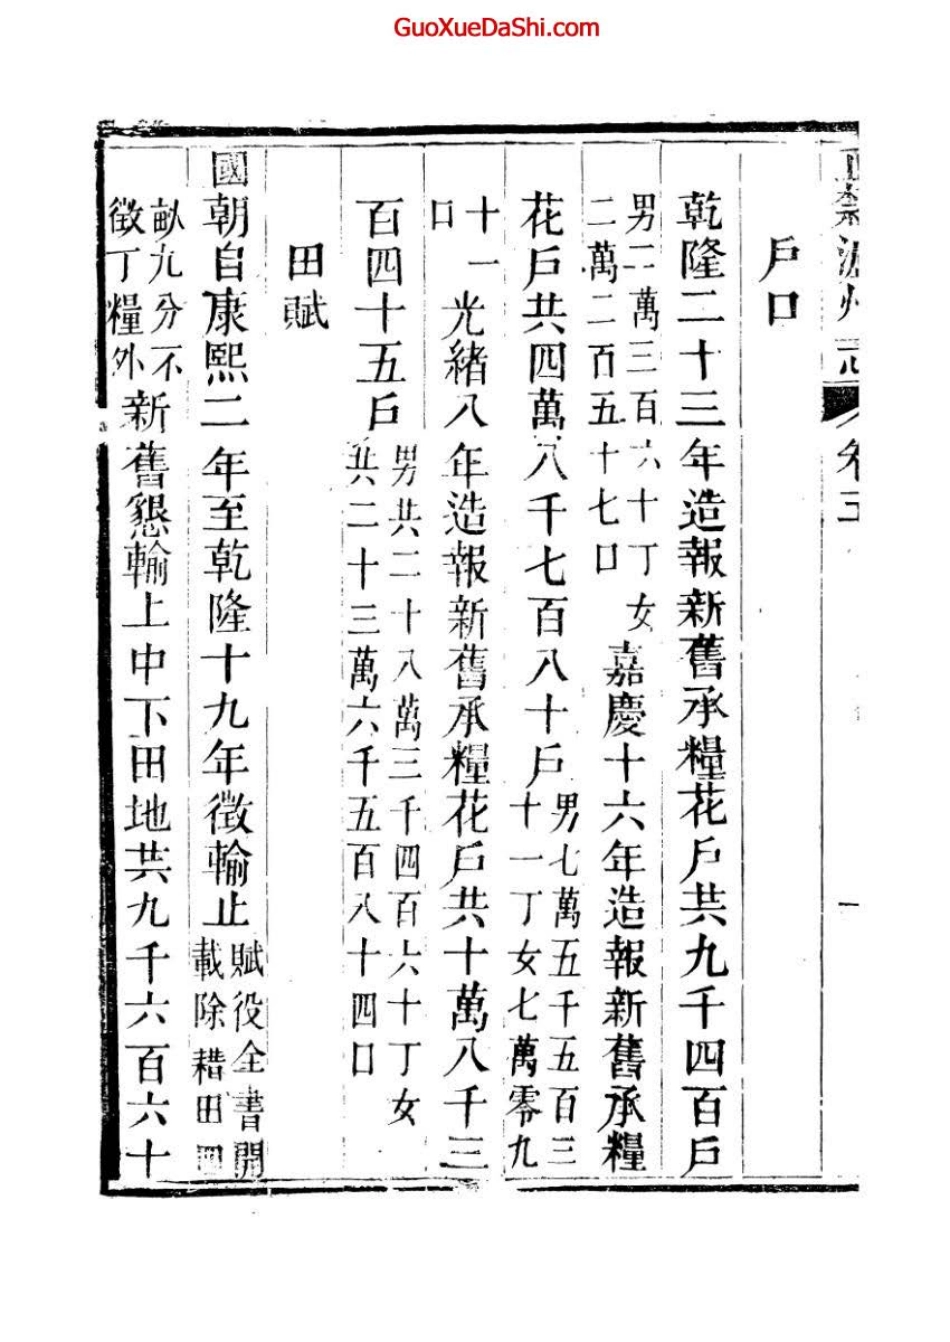 GuoXueDaShi.com
戶口
乾隆二十三年造報新舊承糧花戶共九千四百戶
男二萬三百六十丁女
二萬二百五十七口
嘉慶十六年造報新舊承糧
花戶共四萬八千七百八十戶
男七萬五千五百三
十一丁女七萬零九
十一
口
光緒八年造報新舊承糧花戶共十萬八千三
百四十五戶
男共二十八萬三千四百六十丁女
共二十三萬六千五百八十四口
田賦
國朝自康熙二年至乾隆十九年徵輸止
賦役全書開
載除耤田四
畝九分不
徵丁糧外
新舊懇輸上中下田地共九千六百六十